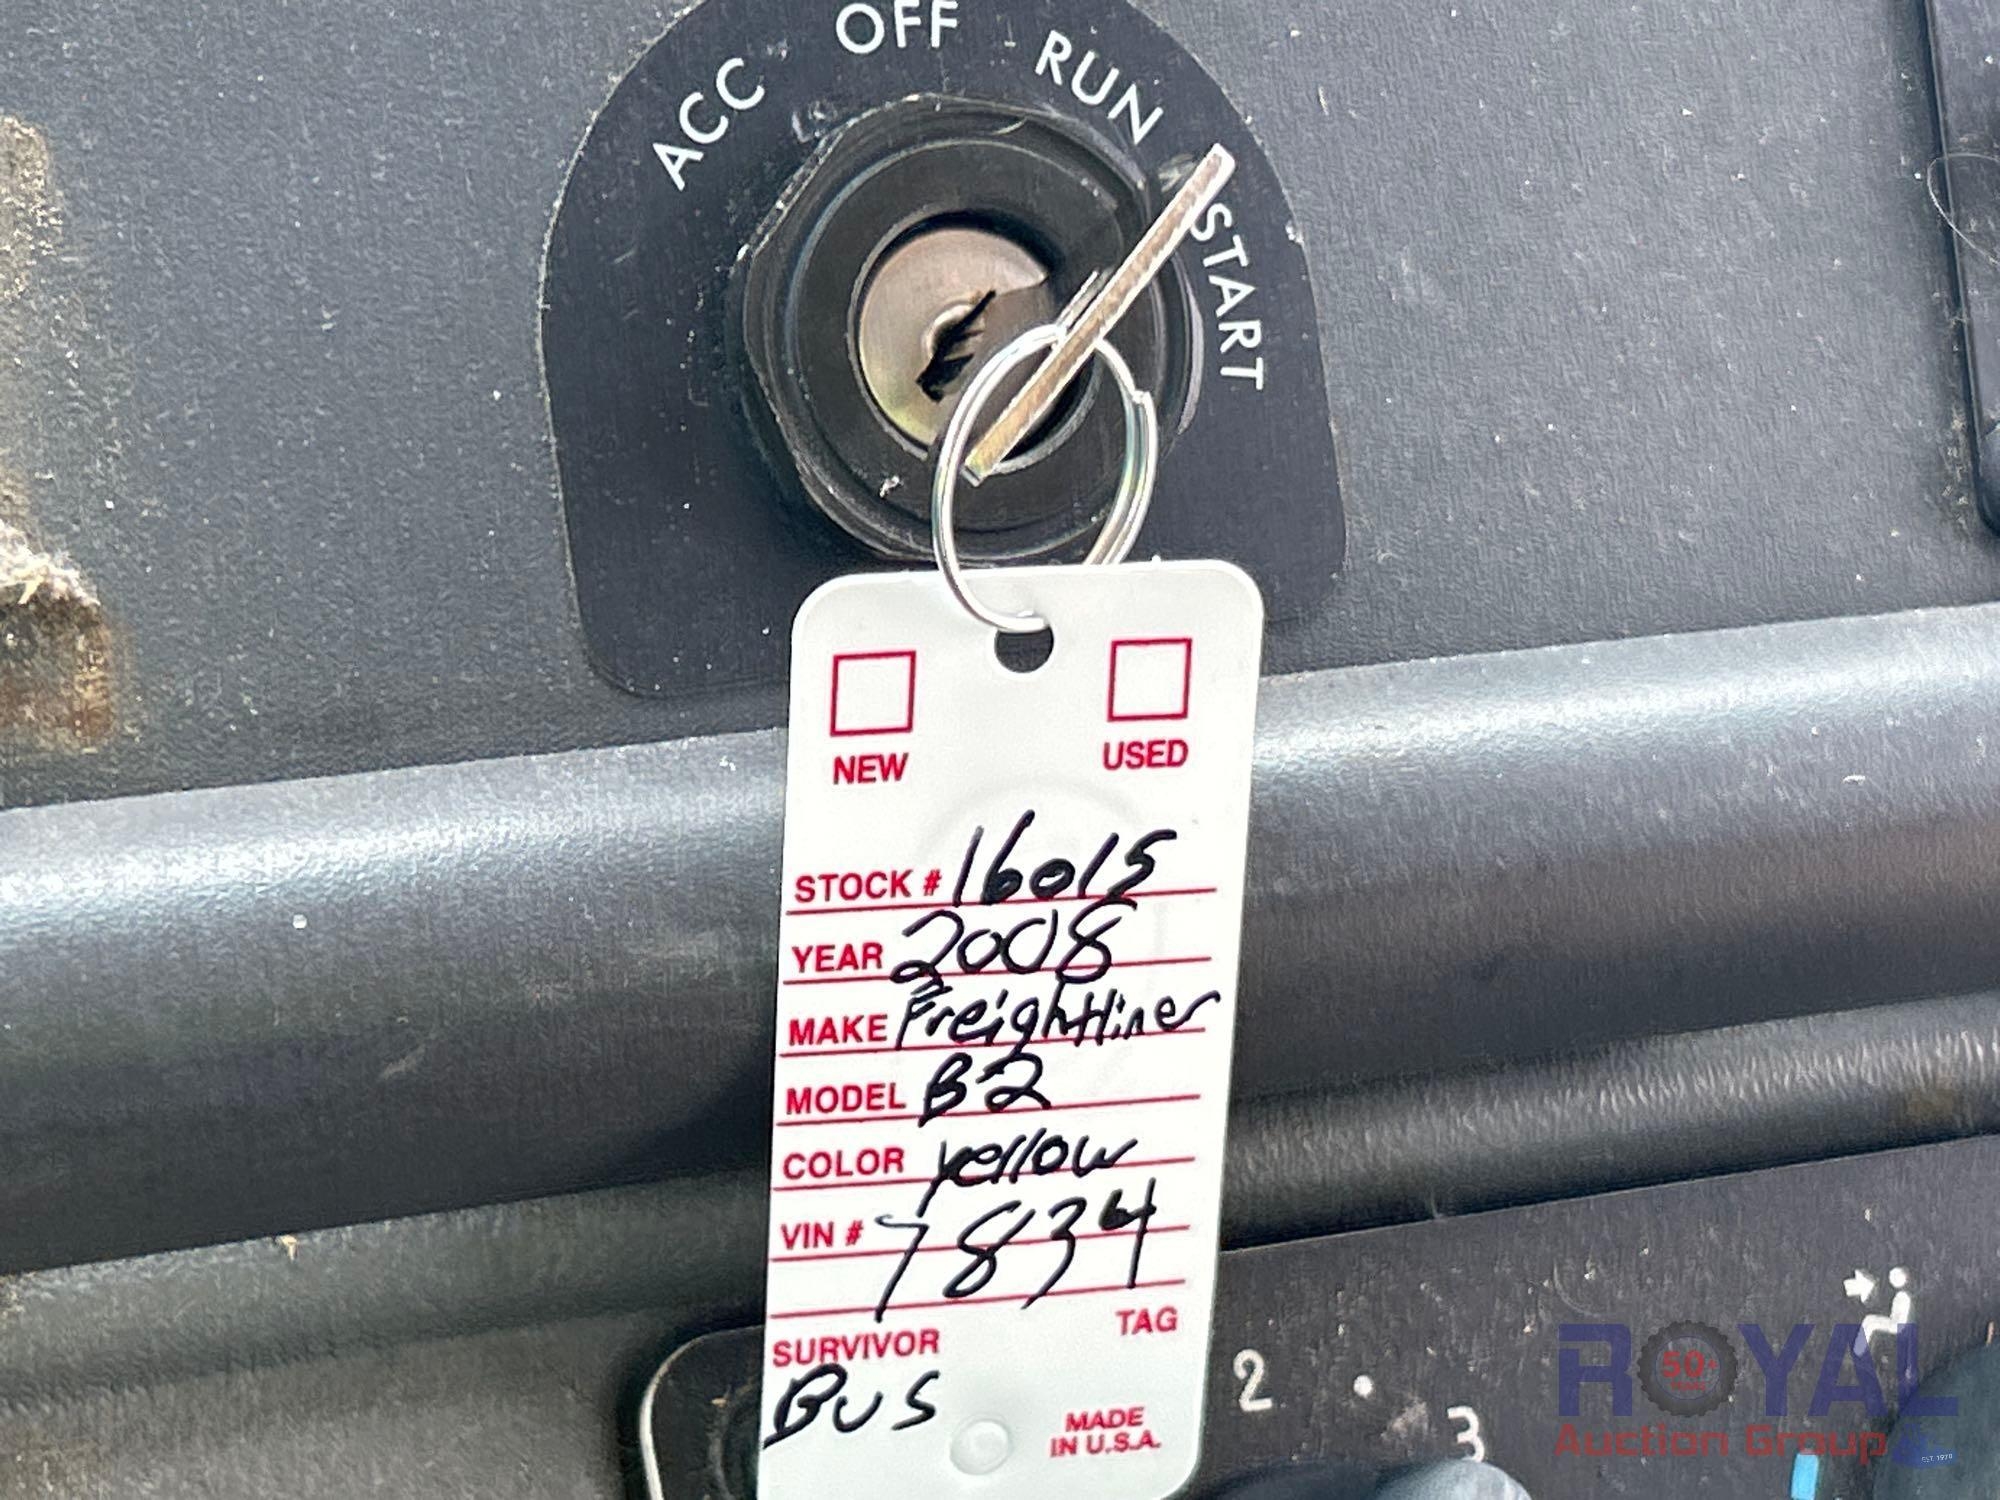 ACC OFF RUN START
NEW USED
STOCK # 16015
YEAR 2008
MAKE Freightliner
MODEL B2
COLOR yellow
VIN # 7834
SURVIVOR TAG
Bus
MADE
IN U.S.A.
2
3
ROYAL
50+
Auction Group
EST. 1970